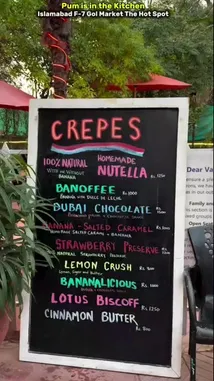 Pum is in the Kitchen
Islamabad F-7 Gol Market The Hot Spot
CREPES
100% NATURAL HOMEMADE
WITH OR WITHOUT BANANA
NUTELLA Rs 1250
BANOFFEE Rs 1000
BANANA WITH DULCE DE LECHE
DUBAI CHOCOLATE
BANANA - SALTED CARAMEL
HOMEMADE SALTED CARAMEL - BANANA
STRAWBERRY PRESERVE
NATURAL STRAWBERRY
LEMON CRUSH Rs 800
LEMON, SUGAR AND BUTTER
BANANALICIOUS Rs 1000
LOTUS BISCOFF
Rs 1250
CINNAMON BUTTER
Rs 800
Dear Va
Family are
Open